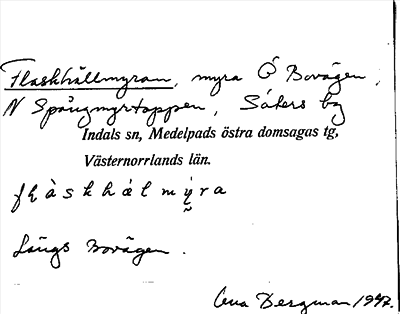 Flaskhällmyran, myra Ö Bovägen,
N Spångmyrtoppen, Säters by
Indals sn, Medelpads östra domsagas tg,
Västernorrlands län.
Längs Bovägen.
Bergman 1947.